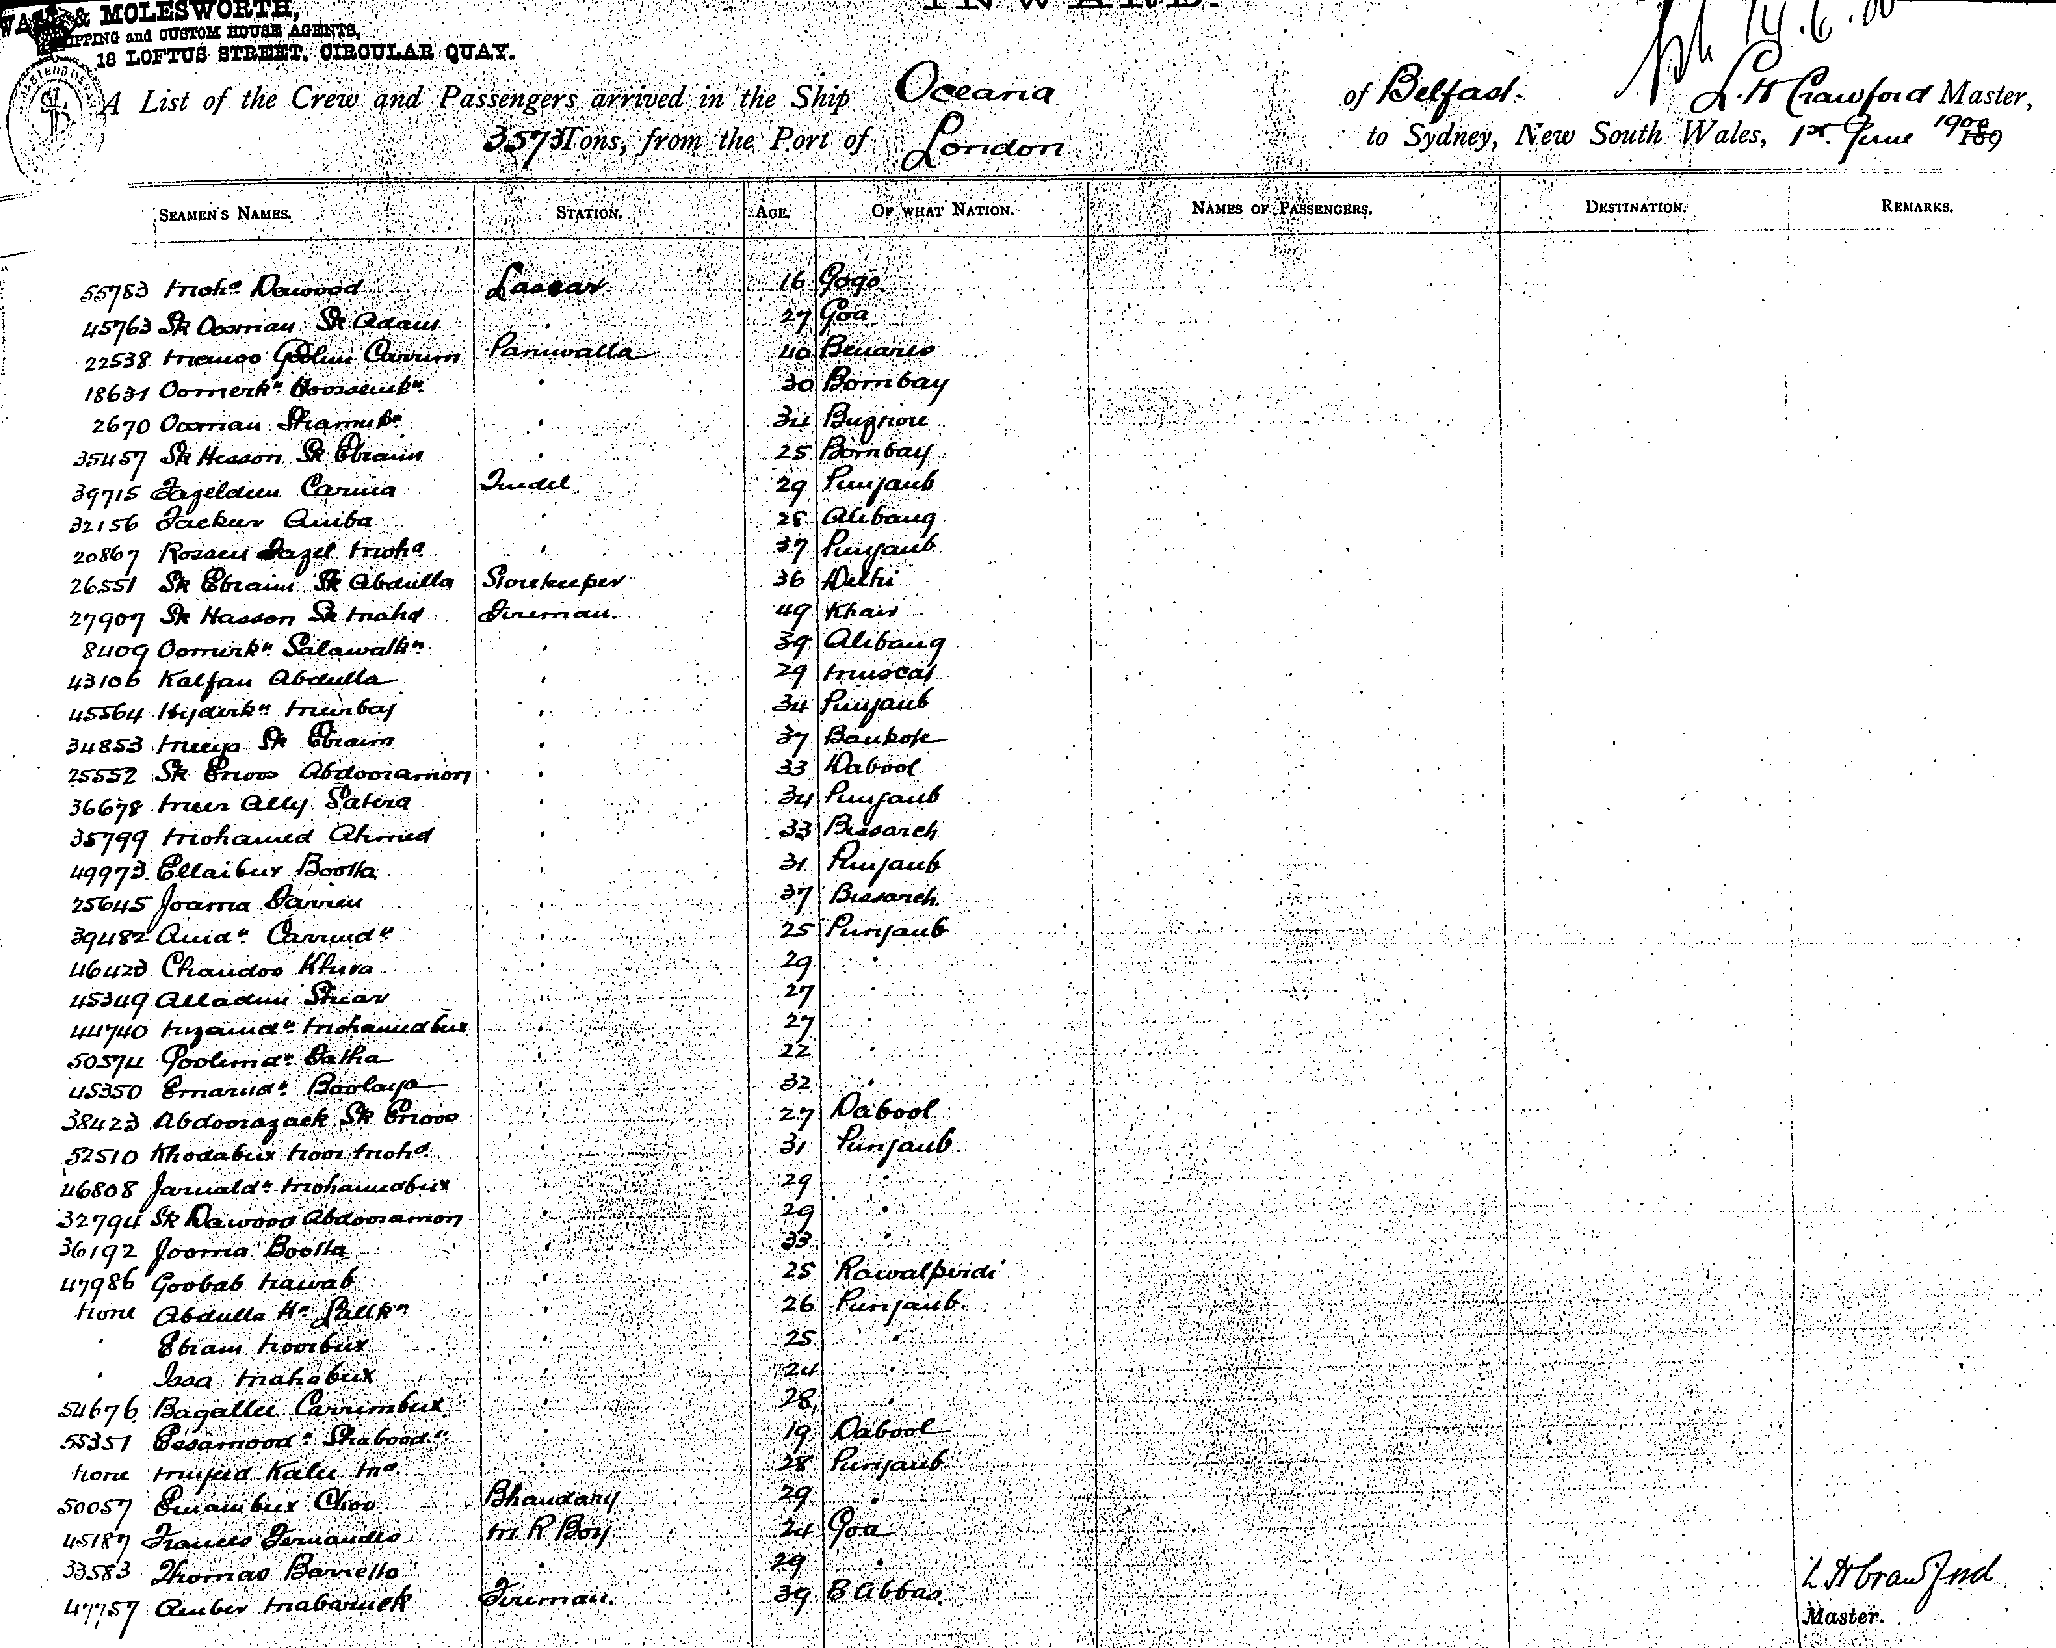 & MOLESWORTH,
SHIPPING and CUSTOM HOUSE AGENTS,
18 LOFTUS STREET, CIRCULAR QUAY.
INWARD.
14.6.00
A List of the Crew and Passengers arrived in the Ship Oceana of Belfast. L. H Crawford Master,
3573 Tons, from the Port of London to Sydney, New South Wales, 1st June 1900 189
SEAMEN'S NAMES. STATION. AGE. OF WHAT NATION. NAMES OF PASSENGERS. DESTINATION. REMARKS.
55783 Mohd Dawood Lascar 16 Gogo
45763 Sk Oosman Sk Adam " 27 Goa
22538 Goolam Carrim Paniwalla 40 Benares
18631 Oomerkn Hoosseinkn " 30 Bombay
2670 Oosman " 34
35457 Sk Hesson Sk Ebraim " 25 Bombay
39715 Fazeldeen Carima Tindel 29 Punjaub
32156 Jackur Aniba " 25 Alibaug
20867 Fazel Mohd " 37 Punjaub
26551 Sk Ebraim Sk Abdulla Storekeeper 36 Delhi
27907 Sk Hasson Sk Mahd Fireman. 49 Khair
8409 Oomirkn Salawatkn " 39 Alibaug
43106 Kalfan Abdulla " 29 Muscat
45564 Hyderkn " 34 Punjaub
34853 Sk Ebraim " 37 Bankote
25552 Sk Enoos Abdooramon " 33 Dabool
36678 Meer Ally " 34 Punjaub
35799 Mohamed Ahmed " 33 Bussareh
49973 Ellaibux Bootta " 31 Punjaub
25645 Jooma " 37 Bussareh
39482 Carrimdn " 25 Punjaub
46423 Chandoo Khiva " 29 "
45349 Alladin " 27 "
44740 Mohamedbux " 27 "
50574 Goolamdn " 22 "
45350 " 32 "
38423 Abdoorazack Sk Enoos " 27 Dabool
52510 Khodabux Noor Mohd " 31 Punjaub
46808 Jamaldn Mohamedbux " 29 "
32794 Sk Dawood Abdooramon " 29 "
36192 Jooma Bootta " 33 "
47986 Goobab Nawab " 25 Rawalpindi
None Abdulla " 26 Punjaub
" Ebram Noorbux " 25 "
" Issa Mahabux " 24 "
54676 Bagallee Carrimbux " 28 "
55351 " 19 Dabool
None Kalu " 28 Punjaub
50057 Emambux Choo Bhandary 29 "
45187 Frances Fernandes M R Boy 24 Goa
33583 Thomas Barretto " 29 "
47757 Amber Mabarrick Fireman. 39 B Abbas.
L H Crawford
Master.